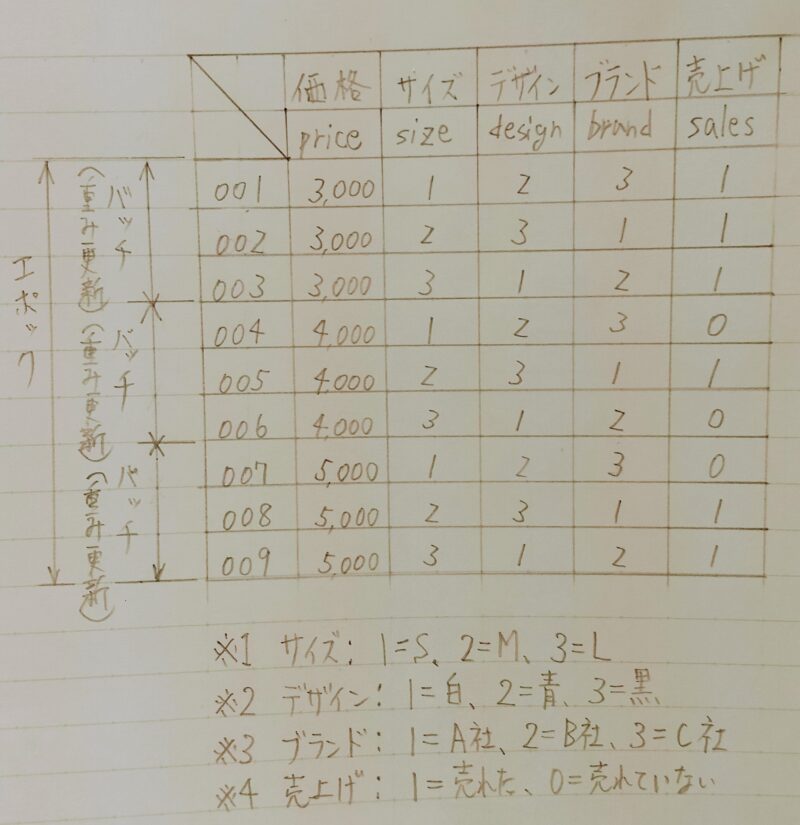 価格 サイズ デザイン ブランド 売上げ
price size design brand sales
001 3,000 1 2 3 1
002 3,000 2 3 1 1
003 3,000 3 1 2 1
004 4,000 1 2 3 0
005 4,000 2 3 1 1
006 4,000 3 1 2 0
007 5,000 1 2 3 0
008 5,000 2 3 1 1
009 5,000 3 1 2 1
エポック
バッチ
(重み更新)
バッチ
(重み更新)
バッチ
(重み更新)
※1 サイズ: 1=S、2=M、3=L
※2 デザイン: 1=白、2=青、3=黒
※3 ブランド: 1=A社、2=B社、3=C社
※4 売上げ: 1=売れた、0=売れていない